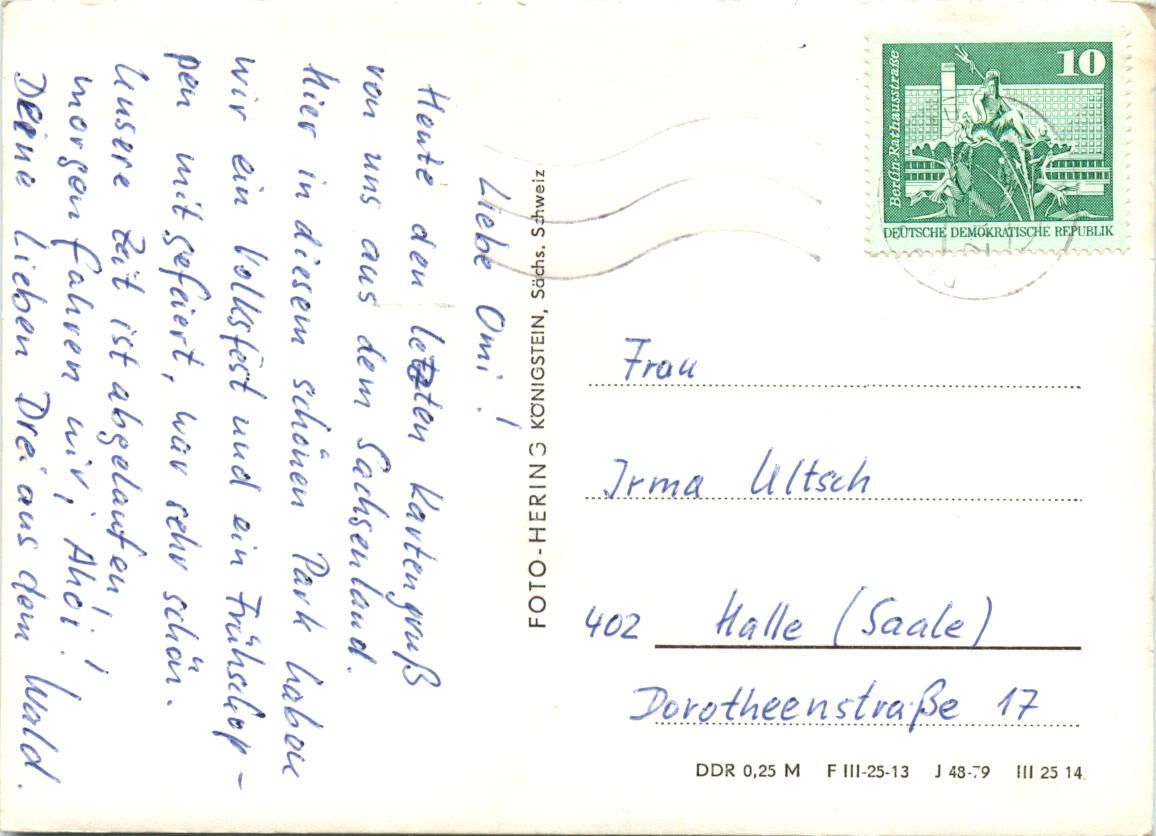 Liebe Omi!
Heute den letzten Kartengruß
von uns aus dem Sachsenland.
Hier in diesem schönen Park haben
wir ein Volksfest und ein Frühschop-
pen mit gefeiert, war sehr schön.
Unsere Zeit ist abgelaufen,
morgen fahren wir, Ahoi!
Deine Lieben Drei aus dem Wald.
FOTO-HERING KÖNIGSTEIN, Sächs. Schweiz
10
Berlin, Rathausstraße
DEUTSCHE DEMOKRATISCHE REPUBLIK
Frau
Irma Ultsch
402 Halle (Saale)
Dorotheenstraße 17
DDR 0,25 M F III-25-13 J 48-79 III 25 14